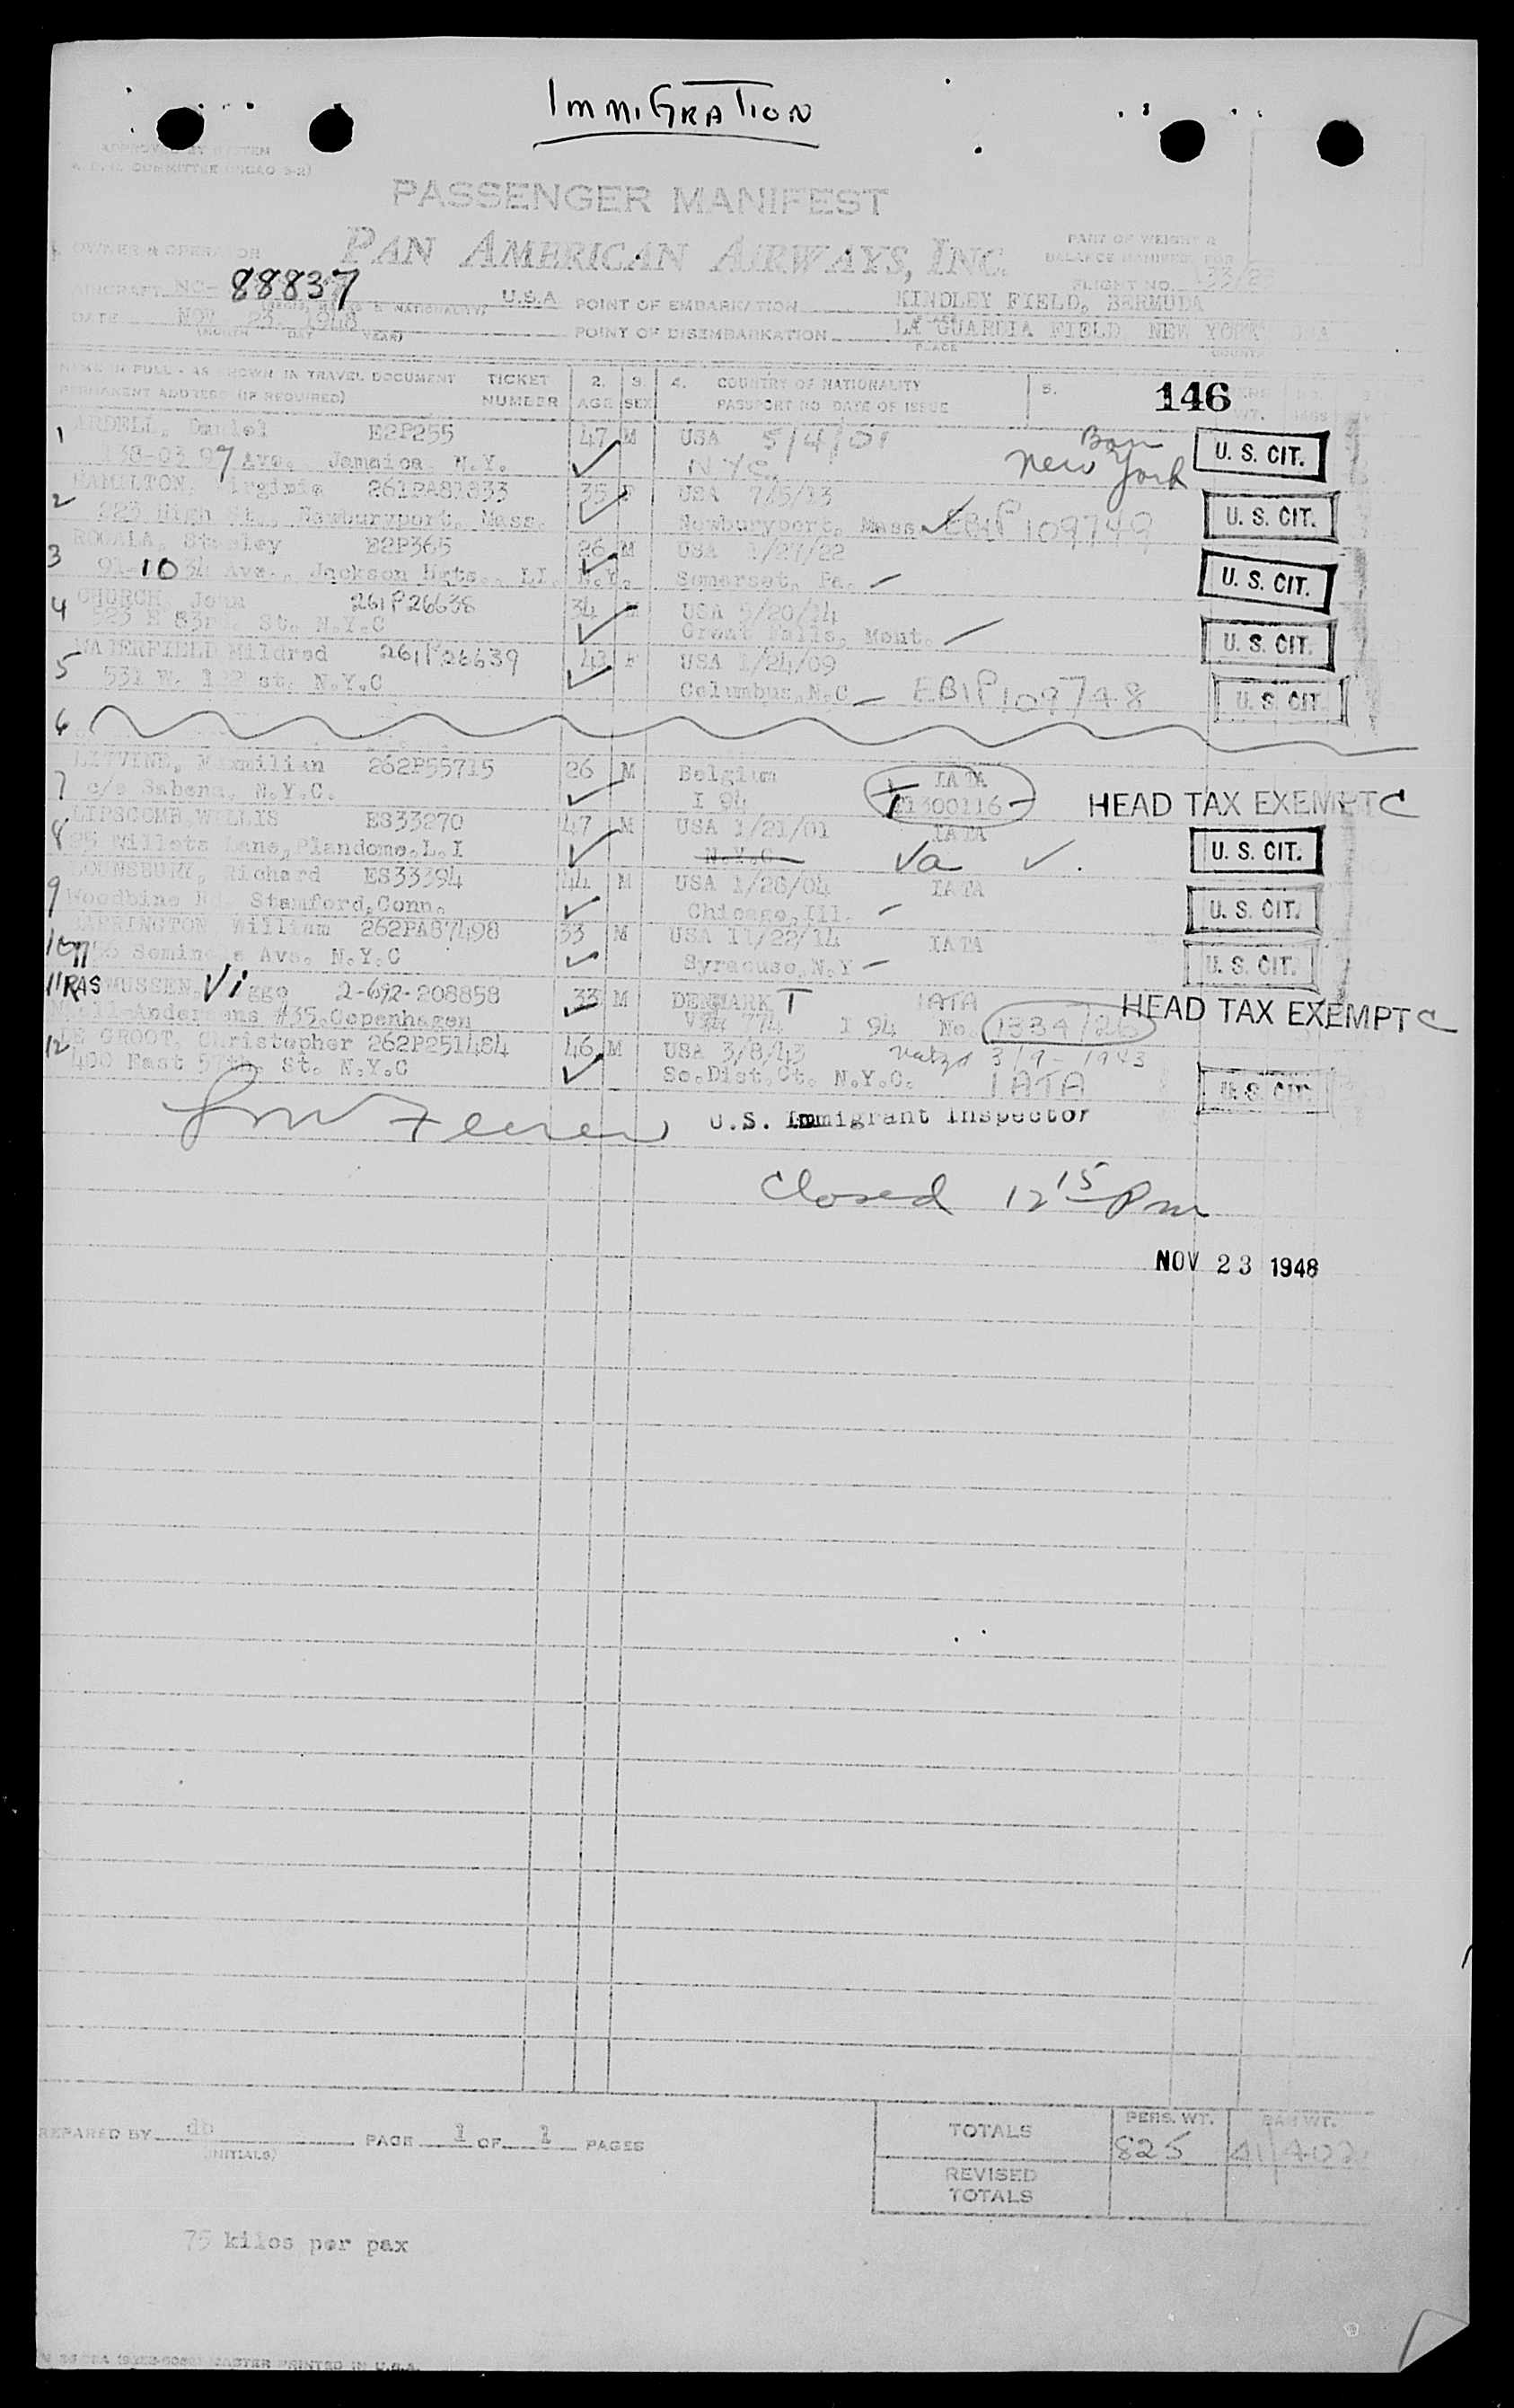 IMMIGRATION
APPROVED BY SYSTEM
COMMITTEE (NCAO 9-2)
PASSENGER MANIFEST
1. OWNER & OPERATOR PAN AMERICAN AIRWAYS, INC. PART OF WEIGHT &
BALANCE MANIFEST FOR
AIRCRAFT NC- 88837 U.S.A POINT OF EMBARKATION KINDLEY FIELD, BERMUDA FLIGHT NO.
(MARKS & NATIONALITY)
DATE NOV 23, 1948 POINT OF DISEMBARKATION LA GUARDIA FIELD, NEW YORK
(MONTH DAY YEAR) PLACE COUNTRY
NAME IN FULL - AS SHOWN IN TRAVEL DOCUMENT TICKET 2. 3. 4. COUNTRY OF NATIONALITY 5. 146
PERMANENT ADDRESS (IF REQUIRED) NUMBER AGE SEX PASSPORT NO DATE OF ISSUE
1 ARDELL, Daniel E2P255 47 M USA 5/4/01 Born
97 Ave. Jamaica N.Y. N.Y.C. New York U. S. CIT.
2 HAMILTON, Virginia 261PA81833 35 F USA 7/5/13
223 High St., Newburyport, Mass. Newburyport, Mass EBIP109749 U. S. CIT.
3 Stanley E2P365 26 M USA 1/27/22
91-10 34 Ave., Jackson Hgts., LI. N.Y. Somerset, Pa. U. S. CIT.
4 CHURCH, John 261P26638 34 M USA 5/20/14
523 E 83rd. St. N.Y.C Great Falls, Mont. U. S. CIT.
5 WATERFIELD Mildred 261P26639 F USA 1/24/09
531 W. st. N.Y.C Columbus, N.C EBIP109748 U. S. CIT.
6
7 LITVINE, Maxmilian 262P55715 26 M Belgium IATA
c/o Sabena, N.Y.C. I 94 T 300116 HEAD TAX EXEMPT C
8 LIPSCOMB, WILLIS ES33270 47 M USA 1/21/01 IATA
Willets Lane, Plandome, L.I N.Y.C Va U. S. CIT.
9 LOUNSBURY, Richard ES33394 44 M USA 1/26/04 IATA
Woodbine Rd. Stamford, Conn. Chicago, Ill. U. S. CIT.
10 HARRINGTON William 262PA87498 33 M USA 11/22/14 IATA
Seminole Ave. N.Y.C Syracuse, N.Y U. S. CIT.
11 RASMUSSEN, Viggo 2-692-208858 33 M DENMARK T IATA
Andersens #35, Copenhagen 774 I 94 No. HEAD TAX EXEMPT C
12 DE GROOT, Christopher 262P251484 46 M USA 3/8/43 3/9-1943
400 East 57th. St. N.Y.C So. Dist. Ct. N.Y.C. IATA U. S. CIT.
U.S. Immigrant Inspector
Closed 12 15 Pm
NOV 23 1948
TOTALS PERS. WT. BAG WT.
PREPARED BY db PAGE 1 OF 1 PAGES 825
(INITIALS)
REVISED
TOTALS
75 kilos per pax
MASTER PRINTED IN U.S.A.